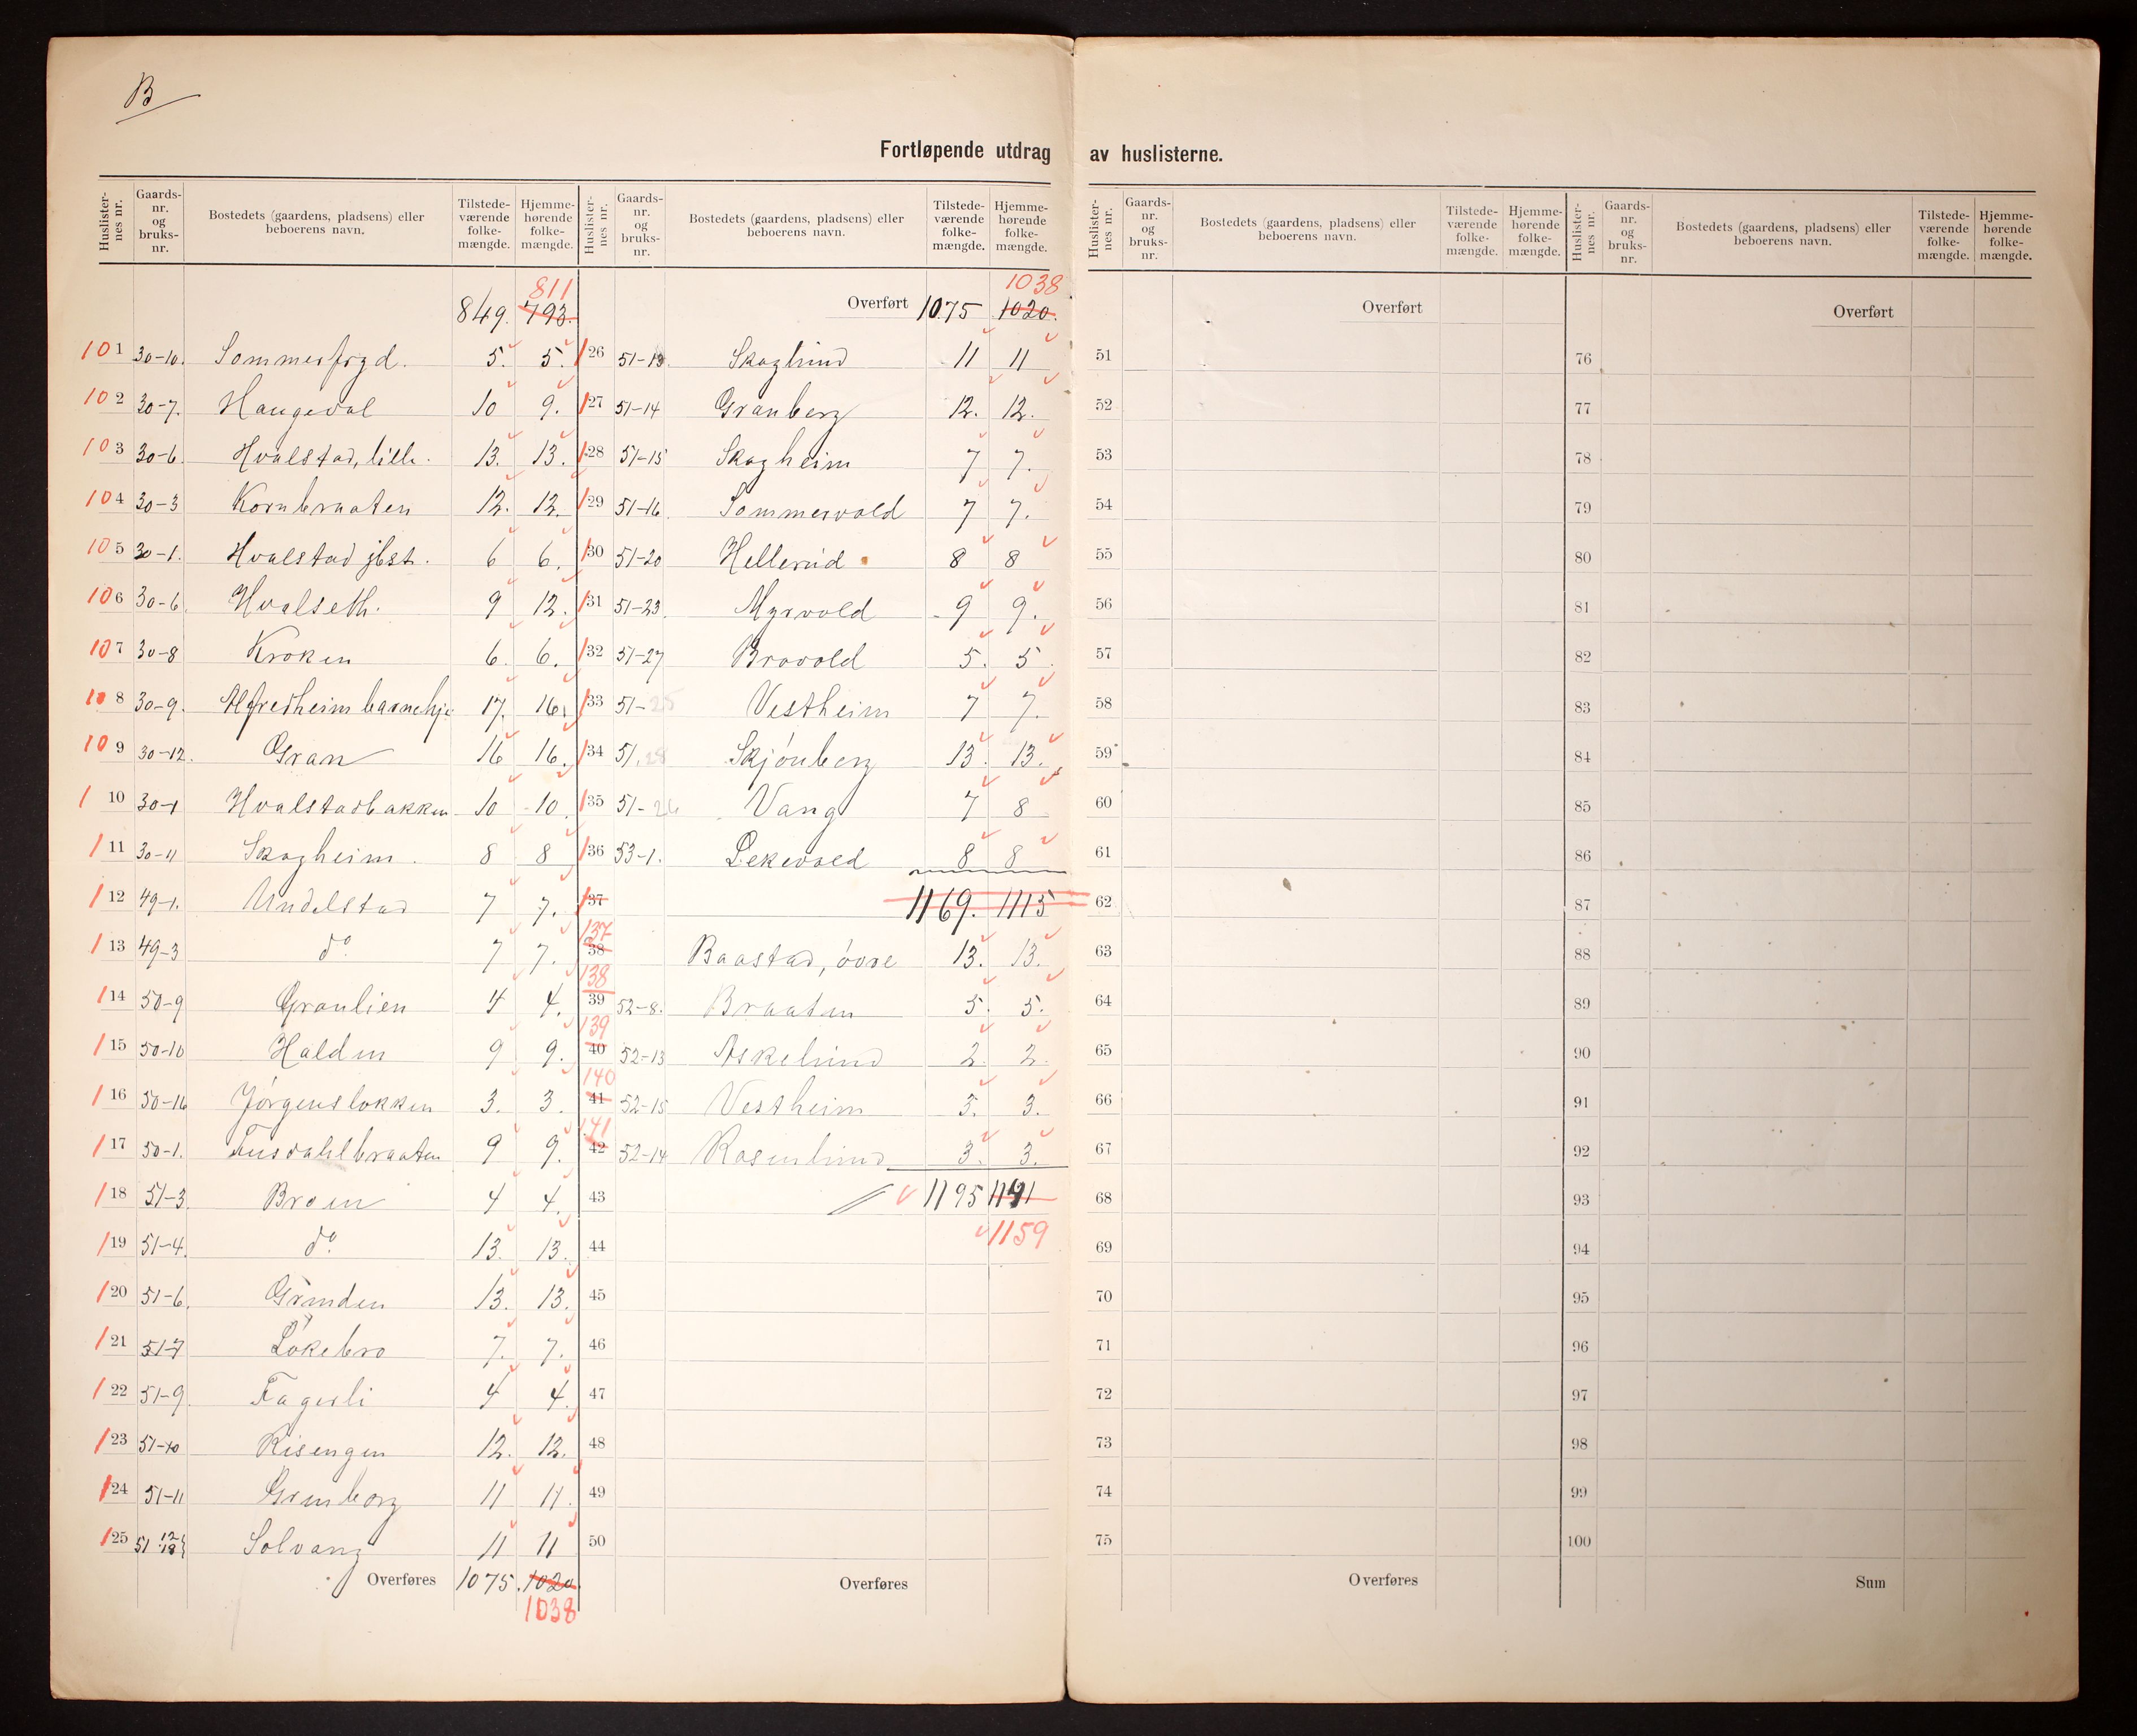 B
Fortløpende utdrag av huslisterne.
Huslisternes nr. Gaards-nr. og bruks-nr. Bostedets (gaardens, pladsens) eller beboerens navn. Tilstede-værende folke-mængde. Hjemme-hørende folke-mængde.
811
849. 793.
101 30-10. Sommerfryd. 5. 5.
102 30-7. Haugeval 10 9.
103 30-6 Hvalstad, lille. 13. 13.
104 30-3 Kornbraaten 12. 12.
105 30-1. Hvalstad jbst. 6 6.
106 30-6. Hvalseth. 9 12.
107 30-8 Kroken 6. 6.
108 30-9. Alfredheim barnehj. 17. 16.
109 30-12. Gran 16 16.
110 30-1 Hvalstadbakken 10 10.
111 30-11 Skogheim. 8 8
112 49-1. Undelstad 7 7.
113 49-3 do. 7 7.
114 50-9 Granlien 4 4.
115 50-10 Halden 9 9.
116 50-16 Jørgensløkken 3. 3.
117 50-1. Fusdahlbraaten 9 9.
118 51-3. Broen 4 4.
119 51-4. do. 13. 13.
120 51-6. Grinden 13. 13.
121 51-7 Løkebro 7. 7.
122 51-9. Fagerli 4 4.
123 51-10 Risengen 12. 12.
124 51-11 Grinborg 11 11.
125 51 12 18 Solvang 11 11
Overføres 1075. 1020.
1038
Huslisternes nr. Gaards-nr. og bruks-nr. Bostedets (gaardens, pladsens) eller beboerens navn. Tilstede-værende folke-mængde. Hjemme-hørende folke-mængde.
1038
Overført 1075 1020.
126 51-13. Skoglund 11 11
127 51-14 Granberg 12. 12.
128 51-15 Skogheim 7 7.
129 51-16. Sommervold 7 7.
130 51-20 Hellerud 8 8
131 51-23. Myrvold 9 9.
132 51-27 Brovold 5. 5.
133 51-25 Vestheim 7 7.
134 51.28 Skjønberg 13. 13.
135 51-26 Vang 7 8
136 53-1. Lekevold 8 8
137 1169. 1115
137 38 Baastad, øvre 13. 13.
138 39 52-8. Braaten 5. 5.
139 40 52-13 Askelund 2. 2.
140 41 52-15 Vestheim 3. 3.
141 42 52-14 Rosenlund 3. 3.
43 1195 1141
1159
44
45
46
47
48
49
50
Overføres
Huslister-nes nr. Gaards-nr. og bruks-nr. Bostedets (gaardens, pladsens) eller beboerens navn. Tilstede-værende folke-mængde. Hjemme-hørende folke-mængde.
Overført
51
52
53
54
55
56
57
58
59
60
61
62
63
64
65
66
67
68
69
70
71
72
73
74
75
Overføres
Huslister-nes nr. Gaards-nr. og bruks-nr. Bostedets (gaardens, pladsens) eller beboerens navn. Tilstede-værende folke-mængde. Hjemme-hørende folke-mængde.
Overført
76
77
78
79
80
81
82
83
84
85
86
87
88
89
90
91
92
93
94
95
96
97
98
99
100
Sum